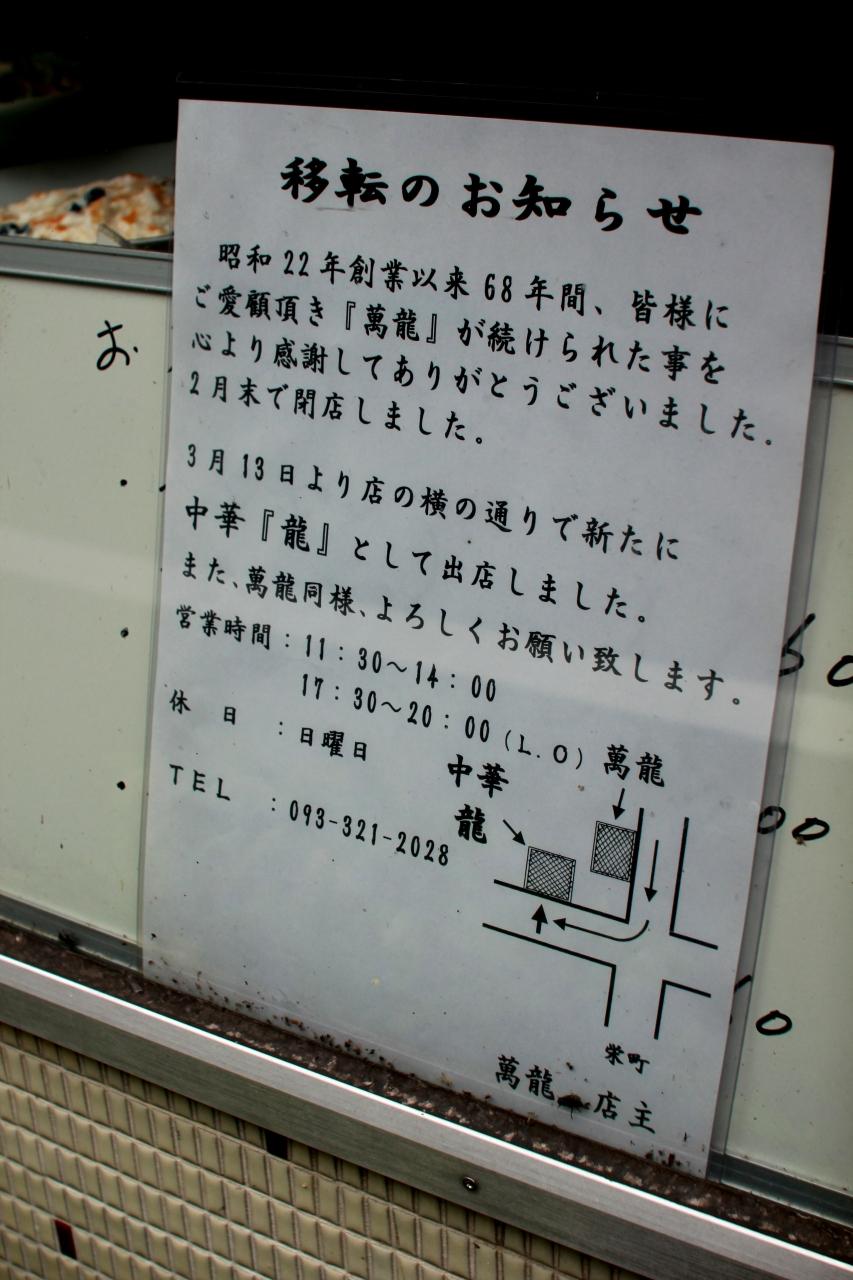 移転のお知らせ
昭和22年創業以来68年間、皆様に
ご愛顧頂き『萬龍』が続けられた事を
心より感謝してありがとうございました。
2月末で閉店しました。
3月13日より店の横の通りで新たに
中華『龍』として出店しました。
また、萬龍同様、よろしくお願い致します。
営業時間：11：30〜14：00
17：30〜20：00（L.O）
休　日　：日曜日
TEL　：093-321-2028
中華
龍
萬龍
栄町
萬龍　店主
お